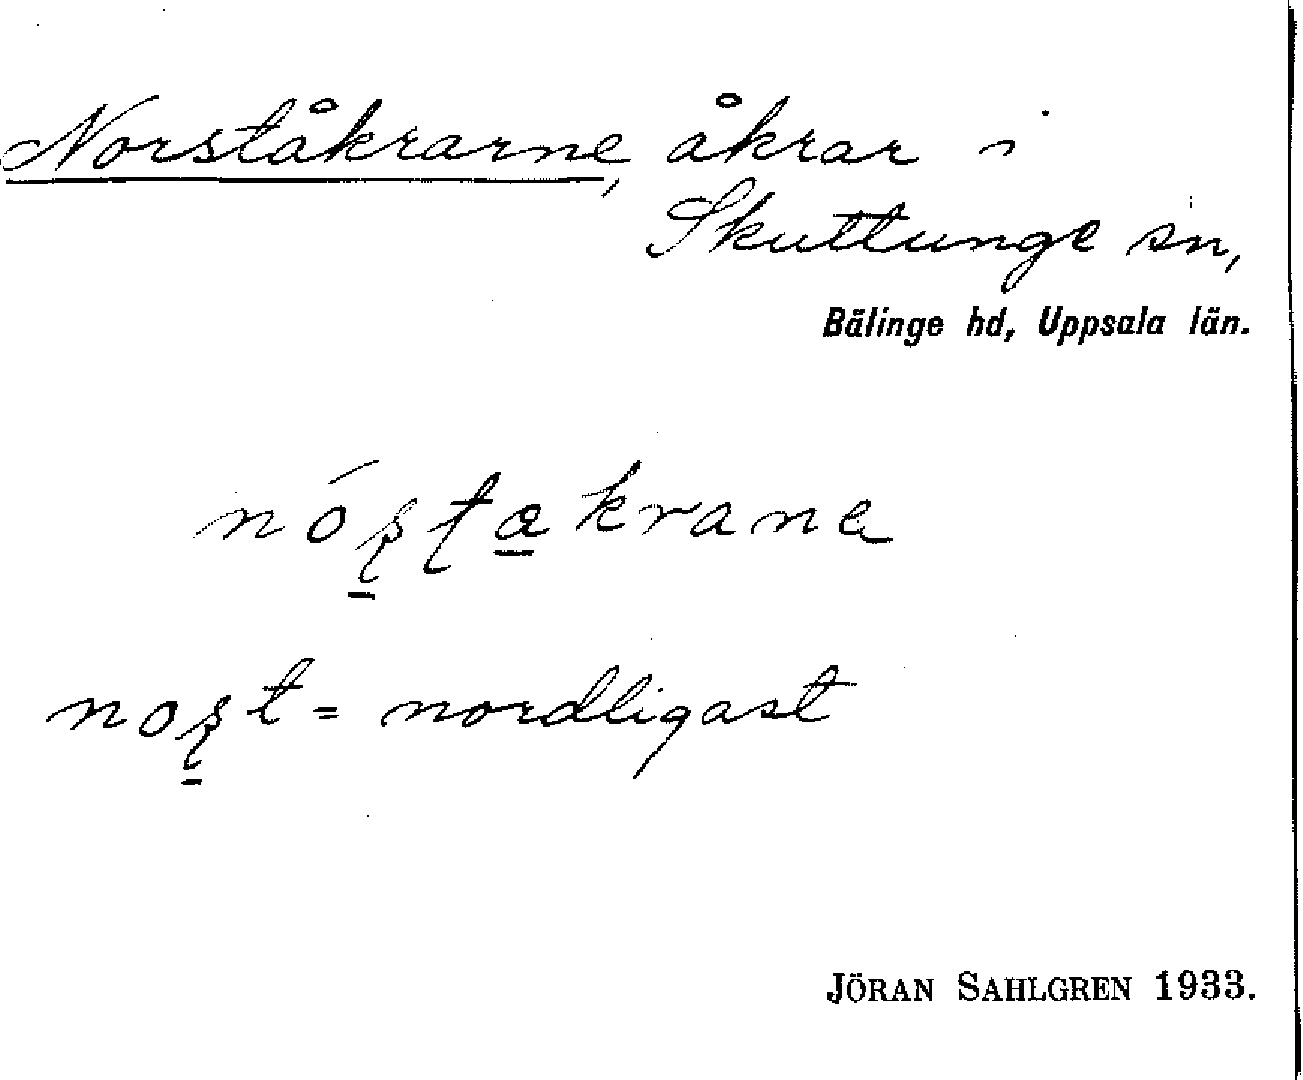 Norståkrarne, åkrar i
Skuttunge sn,
Bälinge hd, Uppsala län.
nóʂ̠ʈa̠krane
noʂ̠t = nordligast
JÖRAN SAHLGREN 1933.